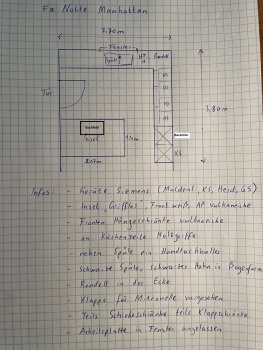 Fa. Nolte Manhattan
3,70m
Fenster
Spüle
Tür
Kochfeld
Insel
3,80m
Backofen
KS
Infos:
- Geräte Siemens (Muldenl., KS, Herd, GS)
- Insel "Grifflos", Front weiß, AP vulkaneiche
- Fronten Hängeschränke vulkaneiche
- an Küchenzeile Holzgriffe
- neben Spüle ein Handtuchhalter
- schwarze Spüle, schwarzer Hahn in Bügelform
- Rondell in der Ecke
- Klappe für Mikrowelle vorgesehen
- Teils Schiebeschränke teils Klappschränke
- Arbeitsplatte in Fenster eingelassen